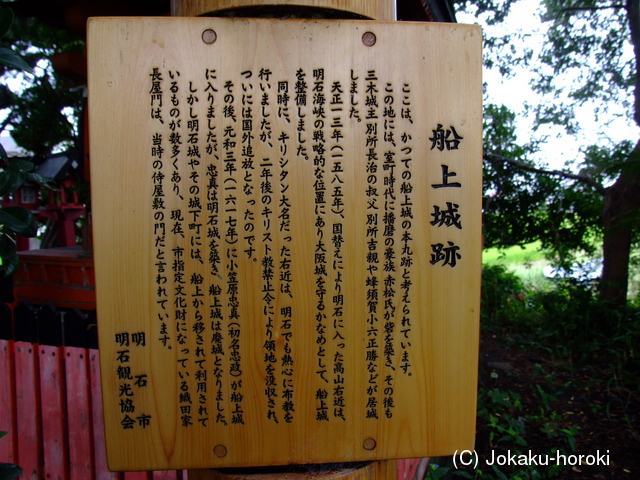 船上城跡
ここは、かつての船上城の本丸跡と考えられています。
この地には、室町時代に播磨の豪族 赤松氏が砦を築き、その後も
三木城主 別所長治の叔父 別所吉親や蜂須賀小六正勝などが居城
しました。
天正一三年(一五八五年)、国替えにより明石に入った高山右近は、
明石海峡の戦略的な位置にあり大阪城を守るかなめとして、船上城
を整備しました。
同時に、キリシタン大名だった右近は、明石でも熱心に布教を
行いましたが、二年後のキリスト教禁止令により領地を没収され、
ついには国外追放となったのです。
その後、元和三年(一六一七年)に小笠原忠真(初名忠政)が船上城
に入りましたが、忠真は明石城を築き、船上城は廃城となりました。
しかし明石城やその城下町には、船上から移されて利用されて
いるものが数多くあり、現在、市指定文化財になっている織田家
長屋門は、当時の侍屋敷の門だと言われています。
明石市
明石観光協会
(C) Jokaku-horoki